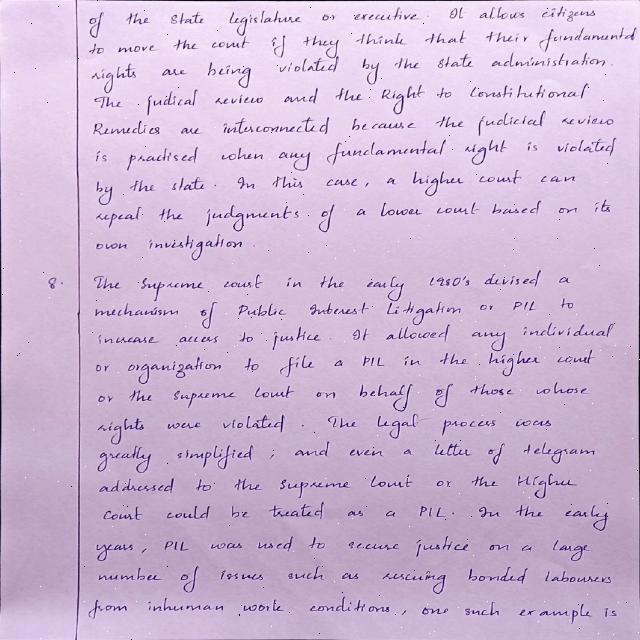 of the State legislature or executive. It allows citizens
to move the court if they think that their fundamental
rights are being violated by the State administration.
The judical review and the Right to Constitutional
Remedies are interconnected because the judicial review
is practised when any fundamental right is violated
by the state. In this case, a higher court can
repeal the judgments of a lower court based on its
own investigation.
8. The Supreme court in the early 1980's devised a
mechanism of Public Interest Litigation or PIL to
increase access to justice. It allowed any individual
or organization to file a PIL in the higher court
or the Supreme Court on behalf of those whose
rights were violated. The legal process was
greatly simplified; and even a letter of telegram
addressed to the Supreme Court or the Higher
Court could be treated as a PIL. In the early
years, PIL was used to secure justice on a large
number of issues such as rescuing bonded labourers
from inhuman work conditions, one such example is